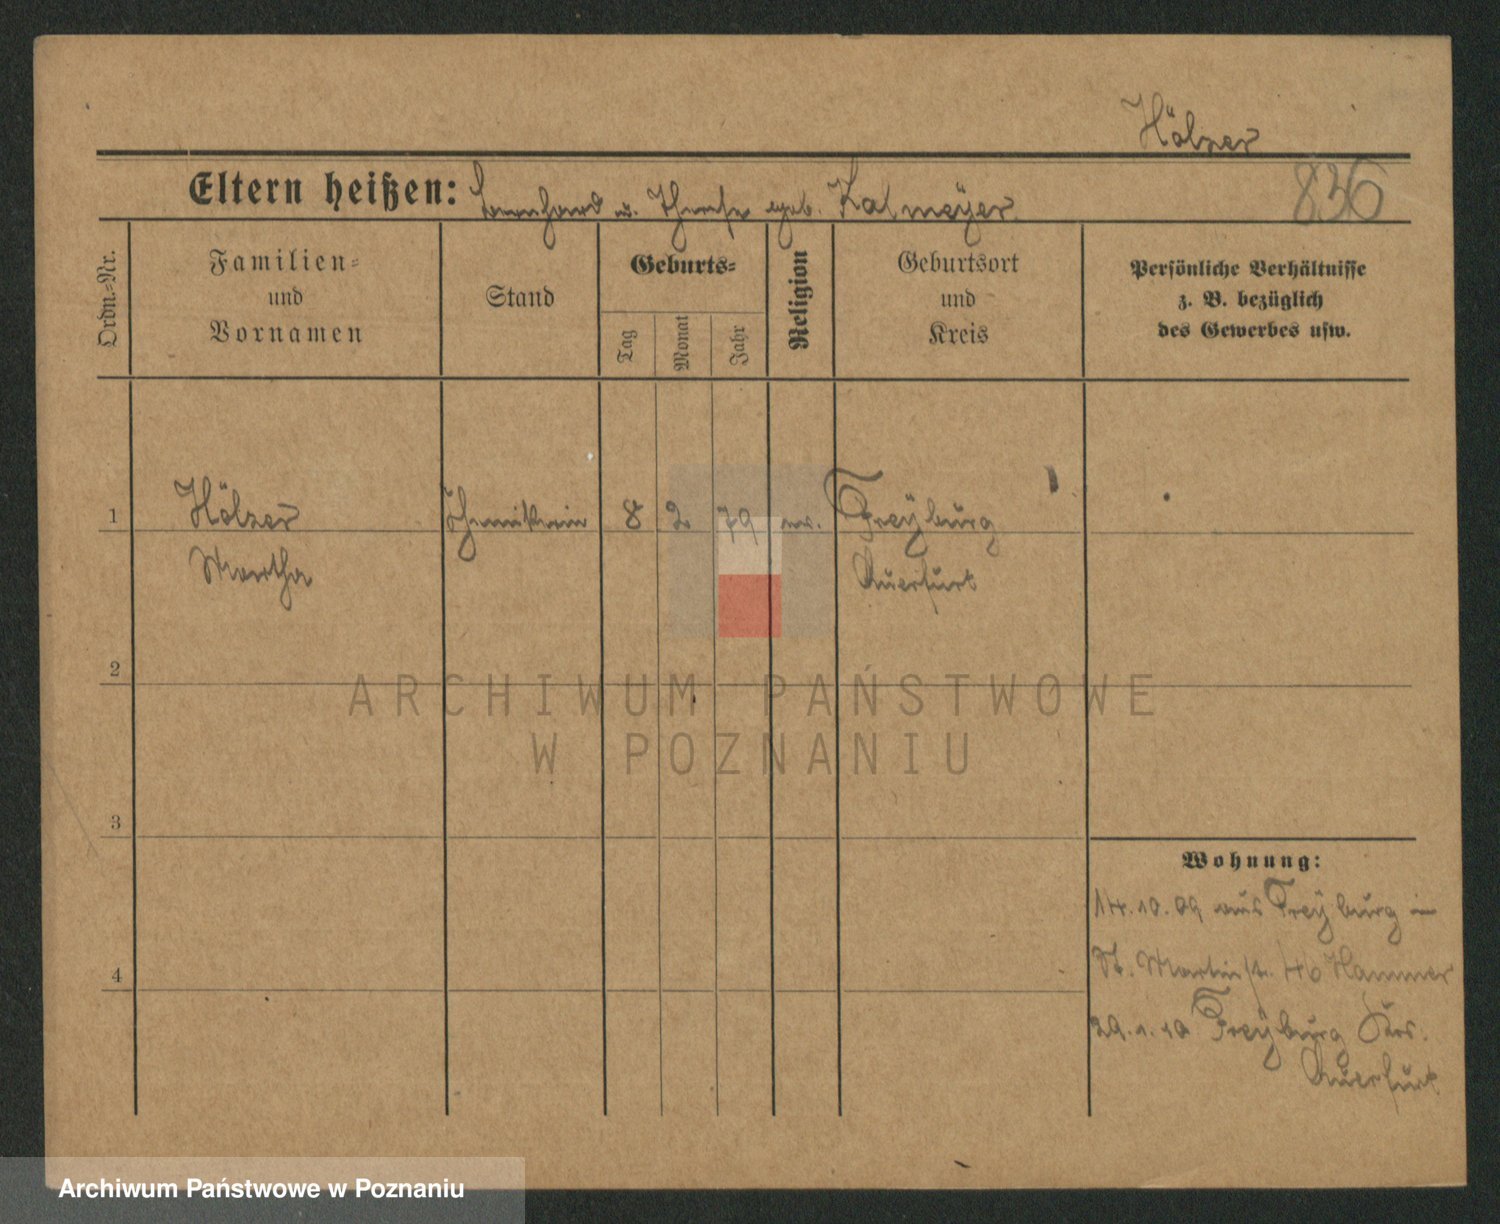 Hölzer
Eltern heißen: Bernhard u. Therese geb. Kalmeyer
836
Ordn.-Nr.
Familien-
und
Vornamen
Stand
Geburts-
Tag
Monat
Jahr
Religion
Geburtsort
und
Kreis
Persönliche Verhältnisse
z. B. bezüglich
des Gewerbes usw.
1
Hölzer
Martha
Chemikerin
8
2
79
ev.
Freyburg
Querfurt
2
ARCHIWUM PAŃSTWOWE
W POZNANIU
3
4
Wohnung:
14.10.09 aus Freyburg in
St. Martinstr. 46 Hammer
29.1.10 Freyburg Krs.
Querfurt
Archiwum Państwowe w Poznaniu